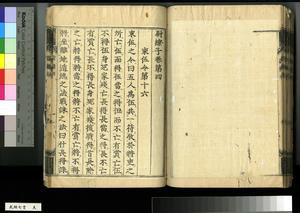 尉繚子卷第四
束伍令第十六
束伍之令曰五人爲伍共一符收於將吏之
所亡伍而得伍當之得伍而不亡有賞亡伍
不得伍身死家殘亡長得長當之得長不亡
有賞亡長不得長身死家殘復戰得首長除
之亡將得將當之得將不亡有賞亡將不得
將坐離地遁逃之法戰誅之法曰什長得誅
武經七書